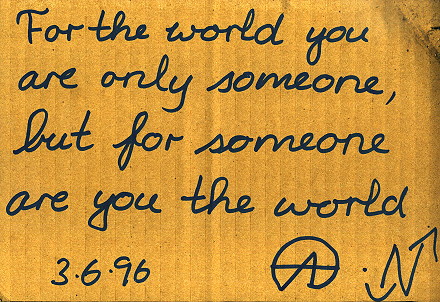 For the world you
are only someone,
but for someone
are you the world
3.6.96